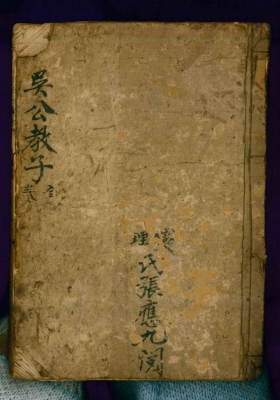 吳公教子
理
氏張應九閱